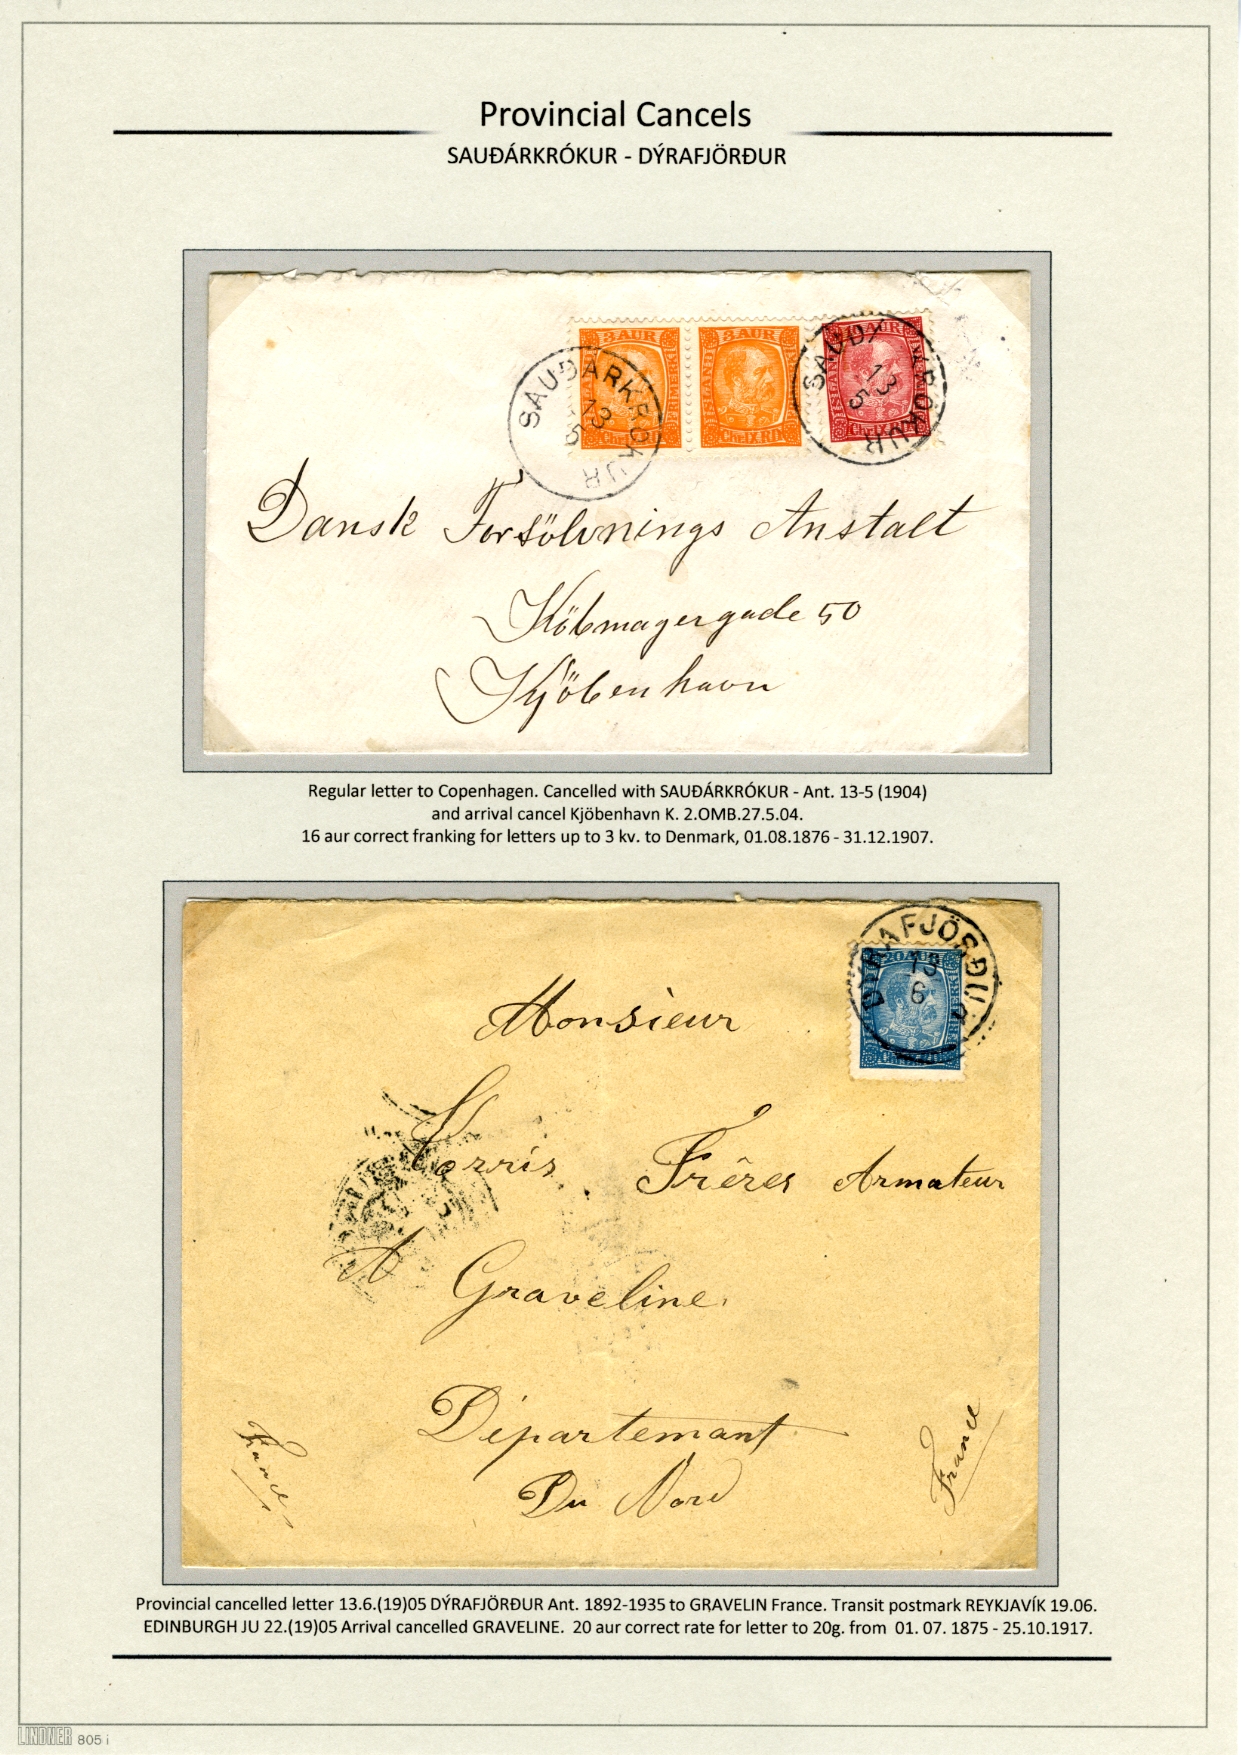 Provincial Cancels
SAUÐÁRKRÓKUR - DÝRAFJÖRÐUR
3 AUR
3 AUR
AUR
ÍSLAND
PRIME
ÍSLAND
ÍSLAND
Chr.IX.RD
Chr.IX.RD
SAUÐÁRKRÓKUR
13
5
SAUÐÁ KRÓKUR
13
5
Dansk Forsölvnings Anstalt
Köbmagergade 50
Kjöbenhavn
Regular letter to Copenhagen. Cancelled with SAUÐÁRKRÓKUR - Ant. 13-5 (1904)
and arrival cancel Kjöbenhavn K. 2.OMB.27.5.04.
16 aur correct franking for letters up to 3 kv. to Denmark, 01.08.1876 - 31.12.1907.
DÝRAFJÖRÐUR
13
6
20 AUR
Chr.IX.RD
Monsieur
Frères Armateur
A Graveline.
Département
Du Nord
France
France
Provincial cancelled letter 13.6.(19)05 DÝRAFJÖRÐUR Ant. 1892-1935 to GRAVELIN France. Transit postmark REYKJAVÍK 19.06.
EDINBURGH JU 22.(19)05 Arrival cancelled GRAVELINE. 20 aur correct rate for letter to 20g. from 01. 07. 1875 - 25.10.1917.
LINDNER 805 i